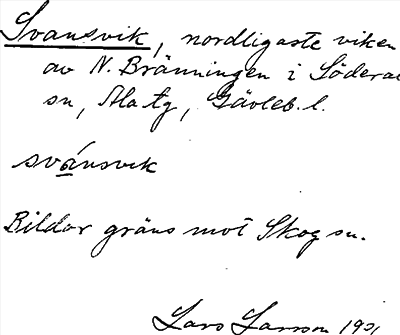 Svansvik, nordligaste viken
av N. Bränningen i Söderala
sn, Ala tg, Gävleb. l.
svánsvik
Bildar gräns mot Skog sn.
Lars Larsson